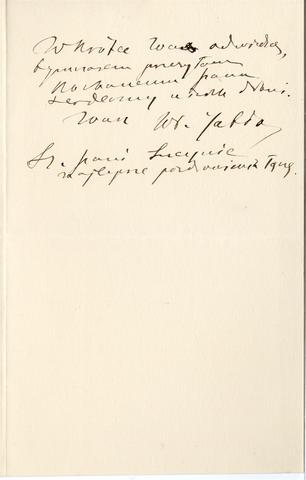 Wkrótce Was odwiedzę,
tymczasem przesyłam
Kochanemu panu
serdeczny uścisk dłoni.
Wasz Wł.
Sz. pani Lucynie
najlepsze pozdrowienia łączę